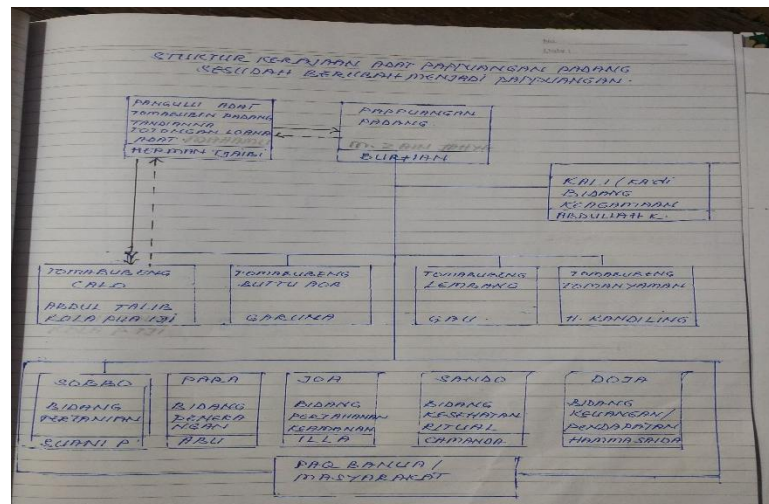 STRUKTUR KERAJAAN ADAT PAPPUANGAN PADANG
SESUDAH BERUBAH MENJADI PAPPUANGAN.
PANGULU ADAT
PADANG
TANDIANNA
ADAT
HERMAN
PAPPUANGAN
PADANG
BURHAN
KALI / KADI
BIDANG
KEAGAMAAN
ABDULLAH K.
TOMABUBENG
CALO
ABDUL TALIB
TOMABUBENG
BUTTU AOR
GARUMA
TOMABUBENG
LEMBANG
GAU
TOMABUBENG
TOMANYAMAN
H. KANDILING
SOBBO
BIDANG
PERTANIAN
SUANI P.
PARA
BIDANG
PENERA
NGAN
ABU
JOA
BIDANG
PERTAHANAN
KEAMANAN
ILLA
SANDO
BIDANG
KESEHATAN
RITUAL
CAMANDA
DOJA
BIDANG
KEUANGAN/
PENDAPATAN
HAMMASAIDA
PAQ BANUA /
MASYARAKAT